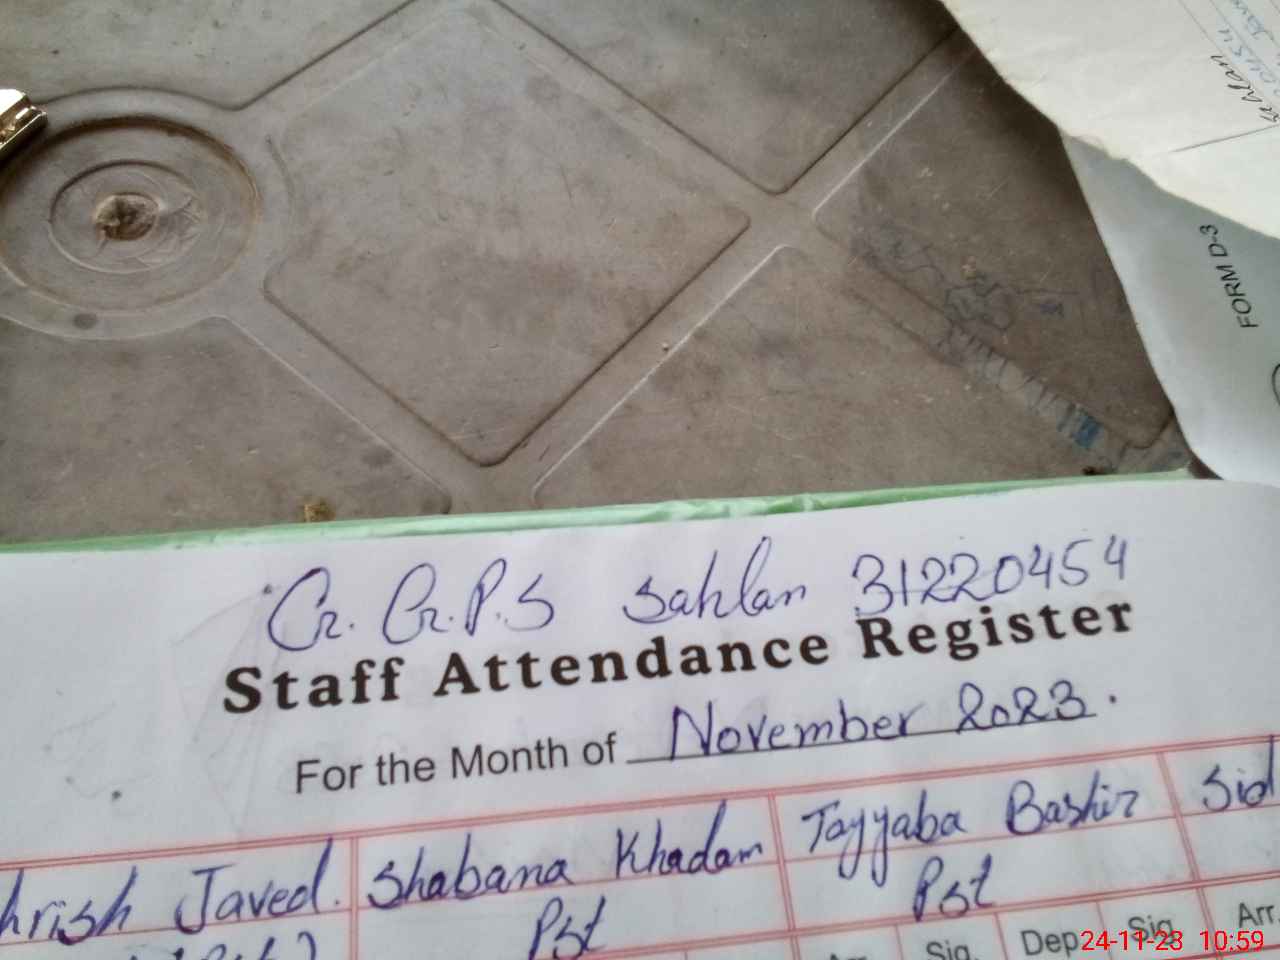 Sahlan
FORM D-3
Gr. Gr.P.S Sahlan 31220454
Staff Attendance Register
For the Month of November 2023.
hrish Javed. Shabana Khadam Tayyaba Bashir Sid
Pst Pst
Sig. Dep Sig. Arr.
24-11-23 10:59